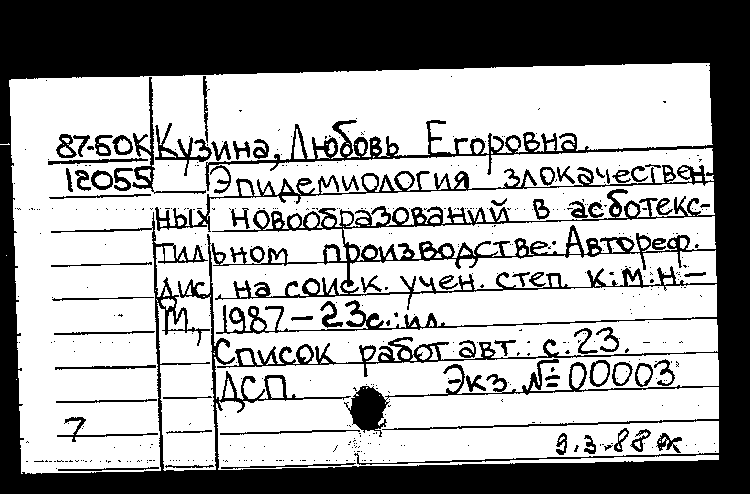 87-БОК Кузина, Любовь Егоровна.
12055 Эпидемиология злокачествен-
ных новообразований в асботекс-
тильном производстве: Автореф.
дис. на соиск. учен. степ. к.м.н. –
М., 1987. – 23 с.: ил.
Список работ авт.: с. 23.
ДСП. Экз. № 00003
7
9.3-88